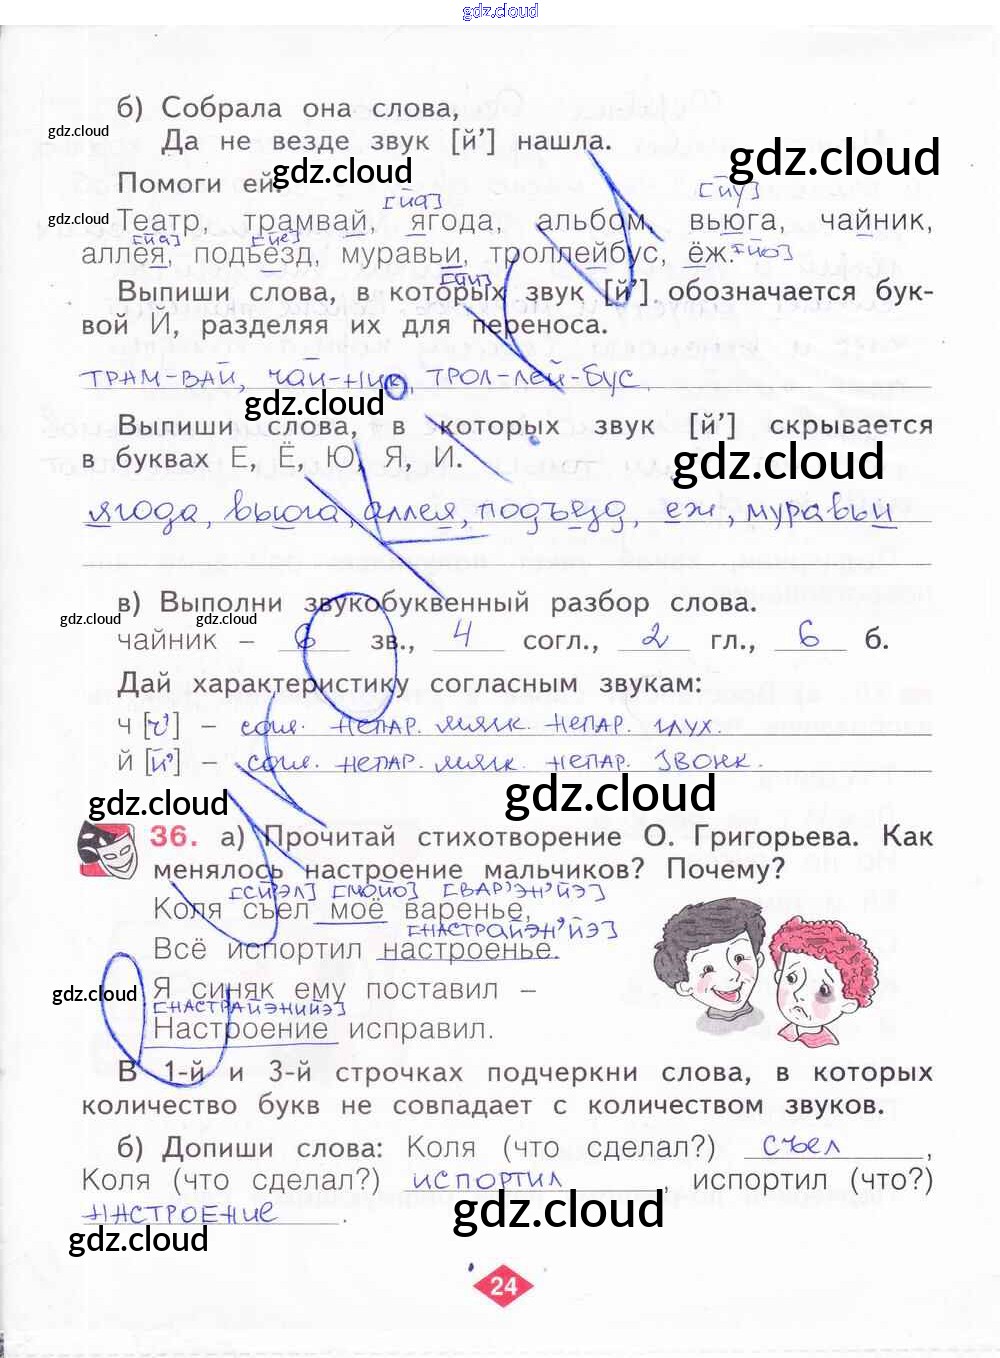 gdz.cloud
б) Собрала она слова,
gdz.cloud
Да не везде звук [й’] нашла.
gdz.cloud
Помоги ей.
gdz.cloud
[йа] [йу]
gdz.cloud
Театр, трамвай, ягода, альбом, вьюга, чайник,
[йа] [йе] [йо]
аллея, подъезд, муравьи, троллейбус, ёж.
[йи]
Выпиши слова, в которых звук [й’] обозначается бук-
вой Й, разделяя их для переноса.
ТРАМ-ВАЙ, ЧАЙ-НИК, ТРОЛ-ЛЕЙ-БУС.
gdz.cloud
Выпиши слова, в которых звук [й’] скрывается
в буквах Е, Ё, Ю, Я, И.
gdz.cloud
ягода, вьюга, аллея, подъезд, еж, муравьи
в) Выполни звукобуквенный разбор слова.
gdz.cloud gdz.cloud
чайник – 6 зв., 4 согл., 2 гл., 6 б.
Дай характеристику согласным звукам:
ч [ч’] – согл. НЕПАР. мягк. НЕПАР. глух.
й [й’] – согл. НЕПАР. мягк. НЕПАР. звонк.
gdz.cloud gdz.cloud
36. а) Прочитай стихотворение О. Григорьева. Как
менялось настроение мальчиков? Почему?
[СЙЭЛ] [МОЙО] [ВАР’ЭН’ЙЭ]
Коля съел моё варенье,
[НАСТРАЙЭН’ЙЭ]
Всё испортил настроенье.
gdz.cloud
Я синяк ему поставил –
[НАСТРАЙЭНИЙЭ]
Настроение исправил.
В 1-й и 3-й строчках подчеркни слова, в которых
количество букв не совпадает с количеством звуков.
б) Допиши слова: Коля (что сделал?) СЪЕЛ,
Коля (что сделал?) ИСПОРТИЛ, испортил (что?)
НАСТРОЕНИЕ.
gdz.cloud
gdz.cloud
24